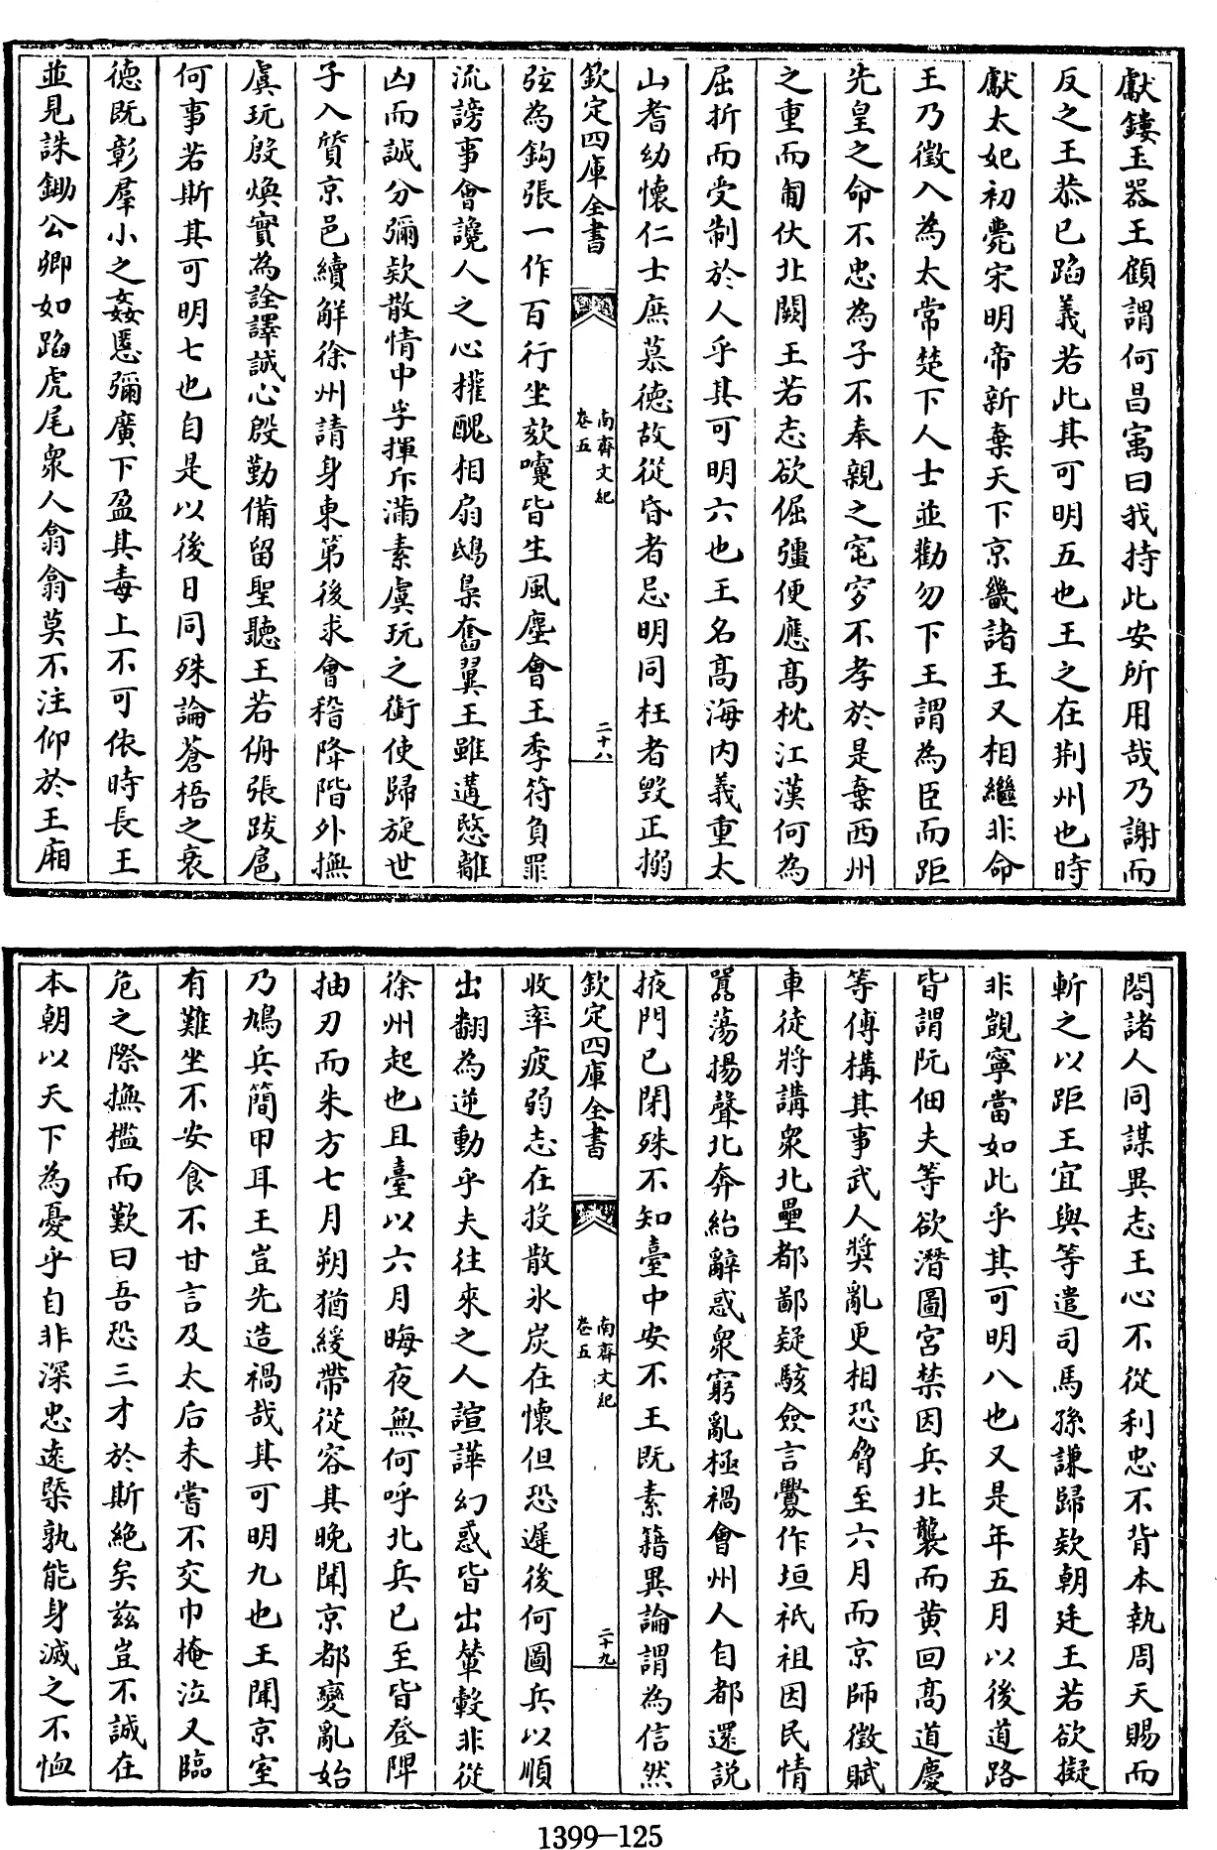 獻鏤玉器王顧謂何昌㝢曰我持此安所用哉乃謝而
反之王恭已蹈義若此其可明五也王之在荆州也時
獻太妃初薨宋明帝新棄天下京畿諸王又相繼非命
王乃徵入為太常楚下人士並勸勿下王謂為臣而距
先皇之命不忠為子不奉親之窀穸不孝於是棄西州
之重而匍伏北闕王若志欲倔彊便應髙枕江漢何為
屈折而受制於人乎其可明六也王名髙海内義重太
山耆幼懷仁士庶慕徳故從昏者忌明同枉者毁正搦
欽定四庫全書
南齊文紀
卷五
二十八
弦為鈎張一作百行坐欬嚏皆生風塵會王季符負罪
流謗事會讒人之心權醜相扇鴟梟奮翼王雖遘愍離
凶而誠分彌欵散情中孚揮斥滿素虞玩之銜使歸旋世
子入質京邑續解徐州請身東第後求會稽降階外撫
虞玩殷煥實為詮譯誠心殷勤備留聖聽王若侜張跋扈
何事若斯其可明七也自是以後日同殊論蒼梧之衰
徳既彰羣小之姦慝彌廣下盈其毒上不可依時長王
並見誅鋤公卿如蹈虎尾衆人翕翕莫不注仰於王廂
閤諸人同謀異志王心不從利忠不背本執周天賜而
斬之以距王宜與等遣司馬孫謙歸欵朝廷王若欲擬
非覬寧當如此乎其可明八也又是年五月以後道路
皆謂阮佃夫等欲潛圖宮禁因兵北襲而黄回髙道慶
等傅構其事武人奨亂更相恐脅至六月而京師徵賦
車徒將講衆北壘都鄙疑駭僉言釁作垣祇祖因民情
囂蕩揚聲北奔紿辭惑衆窮亂極禍會州人自都還説
掖門已閉殊不知臺中安不王既素籍異論謂為信然
欽定四庫全書
南齊文紀
卷五
二十九
收率疲弱志在投散氷炭在懷但恐遲後何圖兵以順
出翻為逆動乎夫往來之人諠譁幻惑皆出輦轂非從
徐州起也且臺以六月晦夜無何呼北兵已至皆登陴
抽刃而朱方七月朔猶緩帶從容其晚聞京都變亂始
乃鳩兵簡甲耳王豈先造禍哉其可明九也王聞京室
有難坐不安食不甘言及太后未嘗不交巾掩泣又臨
危之際撫檻而歎曰吾恐三才於斯絶矣兹豈不誠在
本朝以天下為憂乎自非深忠逺槩孰能身滅之不恤
1399—125